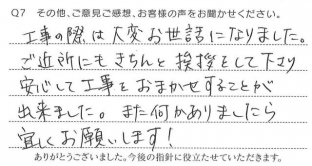 Q7 その他、ご意見ご感想、お客様の声をお聞かせください。
工事の際は大変お世話になりました。
ご近所にもきちんと挨拶をして下さり
安心して工事をおまかせすることが
出来ました。また何かありましたら
宜しくお願いします!
ありがとうございました。今後の指針に役立たせていただきます。